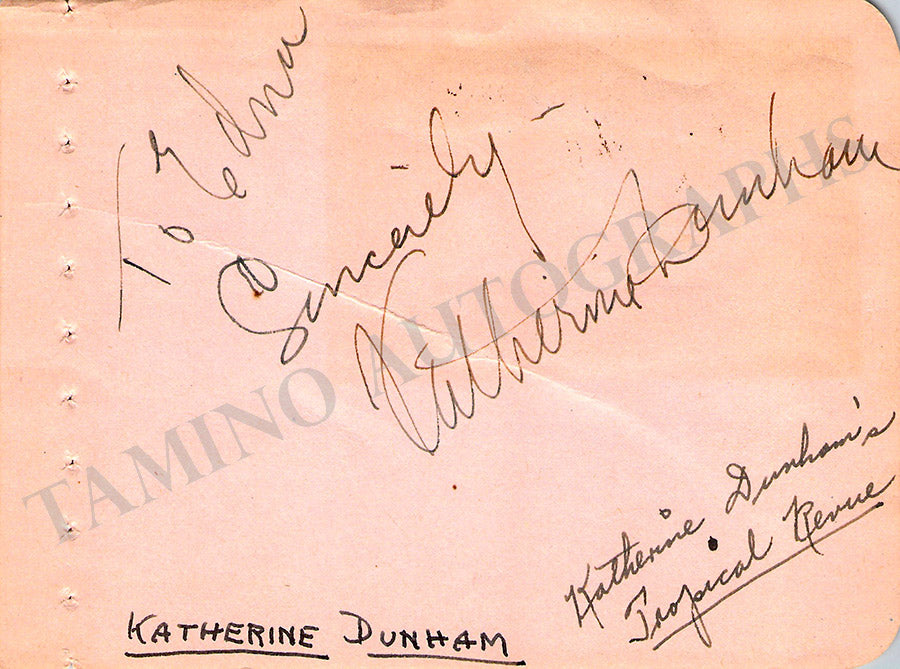 To Edna
Sincerely -
Katherine Dunham
TAMINO AUTOGRAPHS
Katherine Dunham's
Tropical Revue
KATHERINE DUNHAM